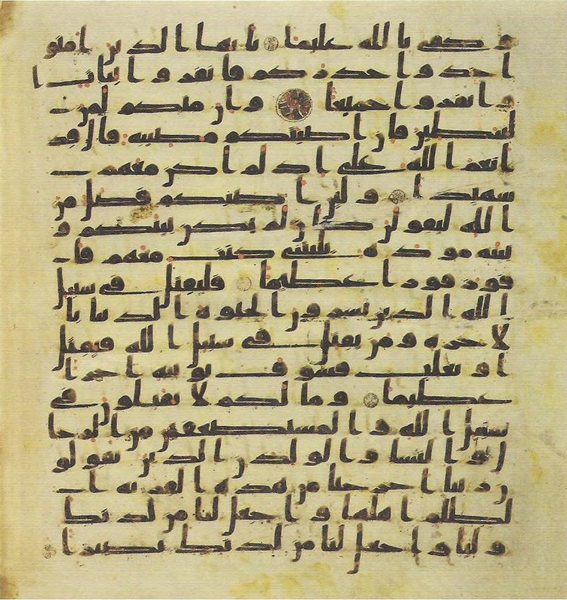 وكفى بالله عليما يايها الذين امنو
ا خذوا حذركم فانفروا ثبات ا
و انفروا جميعا وان منكم لمن
ليبطين فان اصبتكم مصيبه قال قد
انعم الله علي اذ لم اكن معهم
شهيدا ولين اصبكم فضل من
الله ليقولن كان لم تكن بينكم و
بينه موده يليتني كنت معهم فا
فوز فوزا عظيما فليقتل في سبيل
الله الذين يشرون الحيوه الدنيا با
لاخره ومن يقتل في سبيل الله فيقتل
او يغلب فسوف نوتيه اجرا
عظيما وما لكم لا تقتلون في
سبيل الله والمستضعفين من الرجا
ل والنسا والولدن الذين يقولو
ن ربنا اخرجنا من هذه القريه ا
لظلم اهلها واجعل لنا من لدنك
وليا واجعل لنا من لدنك نصيرا